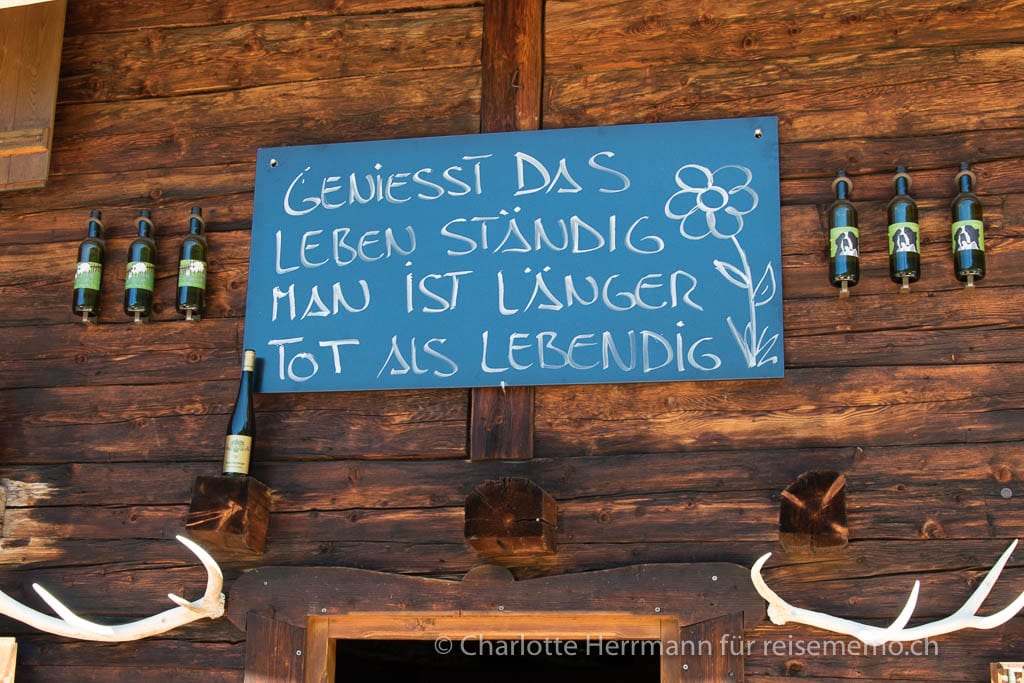 GENIESST DAS
LEBEN STÄNDIG
MAN IST LÄNGER
TOT ALS LEBENDIG
© Charlotte Herrmann für reisememo.ch